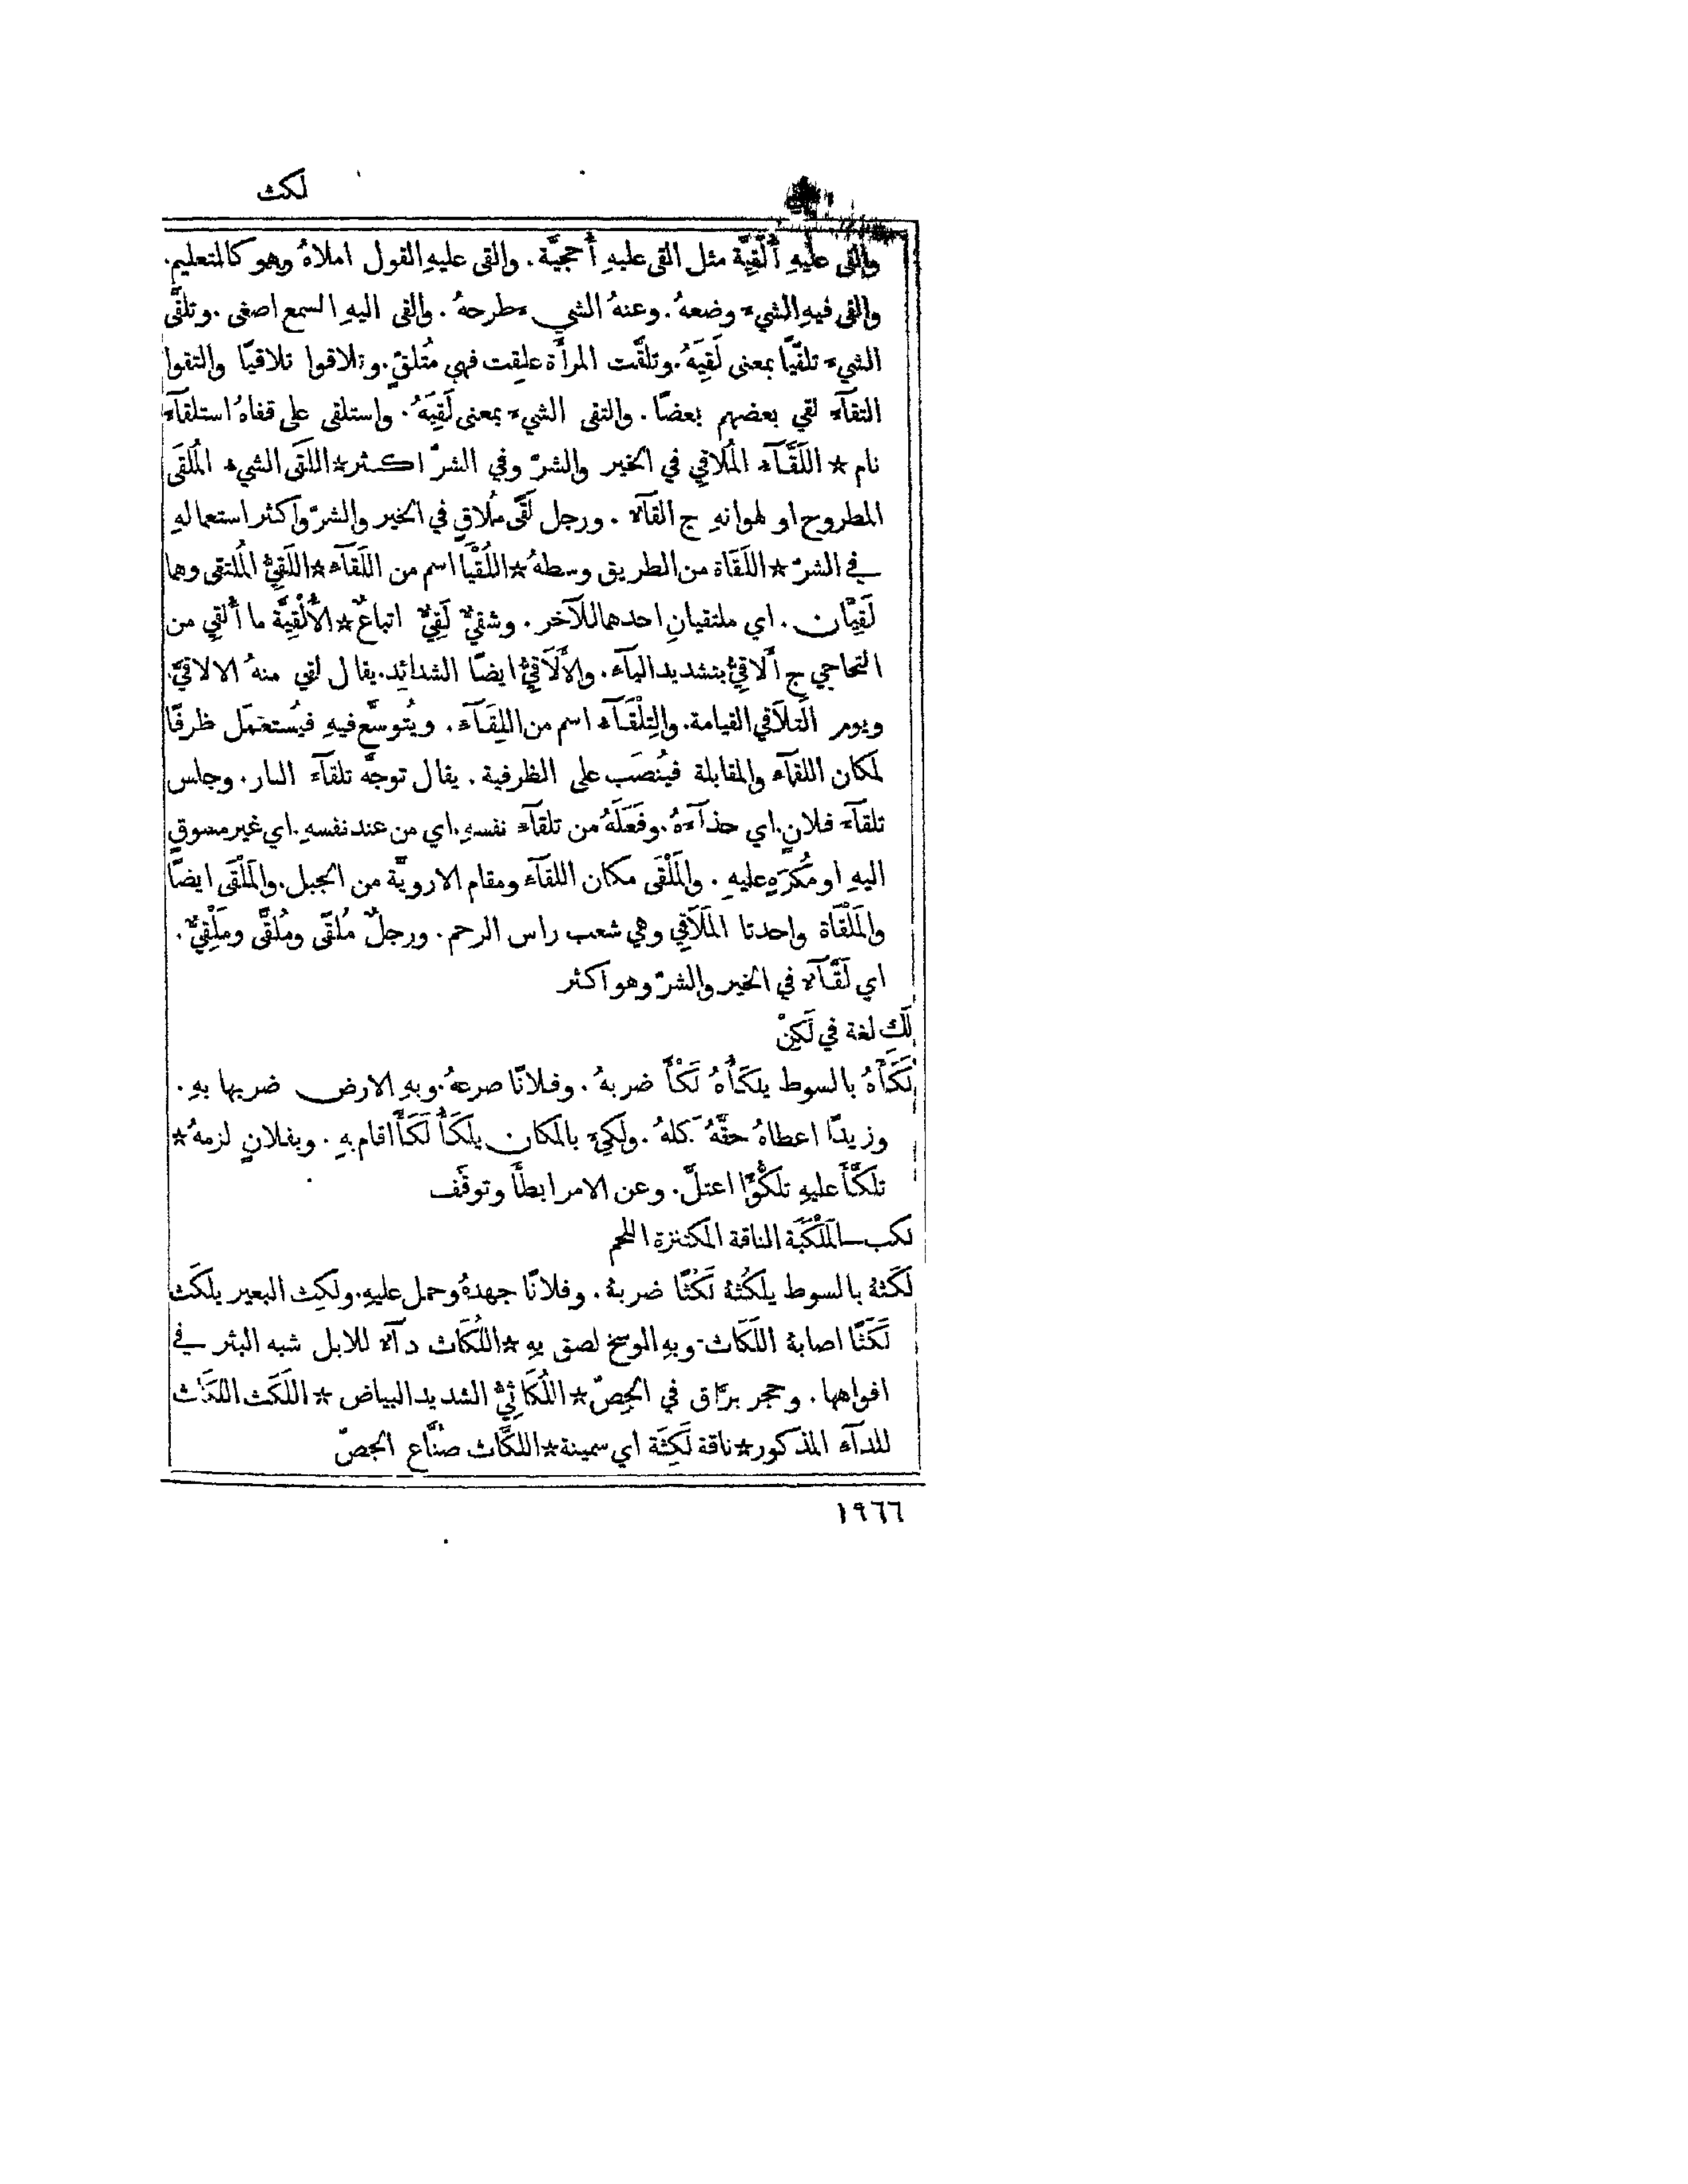 لكث
والقى عليهِ أُلْقِيَّة مثل القى عليهِ أُحجيَّة. والقى عليهِ القول املاهُ وهو كالتعليم.
والقى فيهِ الشيءَ وضعهُ. وعنهُ الشيءَ طرحهُ. والقى اليهِ السمع اصغى. وتلقَّى
الشيءَ تلقّيًا بمعنى لَقِيَهُ. وتلقَّت المرأَة علِقت فهي مُتلقٍّ. وتلاقوا تلاقيًا والتقوا
التقآءً لقي بعضهم بعضًا. والتقى الشيءَ بمعنى لَقِيَهُ. واستلقى على قفاهُ استلقآءً
نام ★ اللَقَّآء المُلاقي في الخير والشرّ وفي الشرّ اكثر ★ اللَقَى الشيء المُلقَى
المطروح او لهوانهِ ج القآءٌ. ورجل لَقًى مُلاقٍ في الخير والشرّ واكثر استعمالهِ
في الشرّ ★ اللَقَاة من الطريق وسطهُ ★ اللُقْيَا اسم من اللَقآء ★ اللَقِيُّ المُلتقى وهما
لَقِيَّان. اي ملتقيانِ احدهما للآخر. وشقيٌّ لَقِيٌّ اتباعٌ ★ الأُلْقِيَّة ما أُلقِي من
التحاجي ج أَلاقِيُّ بتشديد اليآء. والأَلَاقِيُّ ايضًا الشدائد. يقال لقي منهُ الالاقيَّ.
ويوم التَلاَقي القيامة. والتِلْقَآء اسم من اللِقَآء. ويُتوسَّع فيهِ فيُستعمَل ظرفًا
لمكان اللقآء والمقابلة فيُنصَب على الظرفية. يقال توجَّه تلقآءَ النار. وجلس
تلقآءَ فلانٍ. اي حذآءَهُ. وفَعَلَهُ من تلقآءِ نفسهِ. اي من عند نفسهِ. اي غير مسوقٍ
اليهِ او مُكرَهٍ عليهِ. والمَلْقَى مكان اللقآء ومقام الارويَّة من الجبل. والمَلْقَى ايضًا
والمَلْقَاة واحدتا المَلَاقِي وهي شعب راس الرحم. ورجلٌ مُلقًى ومُلَقًّى ومَلْقِيٌّ.
اي لَقَّآءٌ في الخير والشرّ وهو اكثر
لَكِ لغة في لَكِنْ
لَكَأَهُ بالسوط يلكَأُهُ لَكْأً ضربهُ. وفلانًا صرعهُ. وبهِ الارض ضربها بهِ.
وزيدًا اعطاهُ حقَّهُ كلهُ. ولَكِئَ بالمكان يلكَأُ لَكَأً اقام بهِ. وبفلانٍ لزمهُ ★
تلكَّأَ عليهِ تلكُّؤًا اعتلَّ. وعن الامر ابطأَ وتوقَّف
لكب ـ المَلْكَبَة الناقة المكتنزة اللحم
لَكَثهُ بالسوط يلكُثهُ لَكْثًا ضربهُ. وفلانًا جهدهُ وحمل عليهِ. ولكِث البعير يلكَث
لَكَثًا اصابهُ اللُكَاث. وبهِ الوسخ لصق بهِ ★ اللُكَاث دآءٌ للابل شبه البثر في
افواهها. وحجر برّاق في الجِصّ ★ اللُكَاثِيُّ الشديد البياض ★ اللَكَث اللكاث
للدآء المذكور ★ ناقة لَكِثَة اي سمينة ★ اللكَّاث صنَّاع الجصّ
١٩٦٦